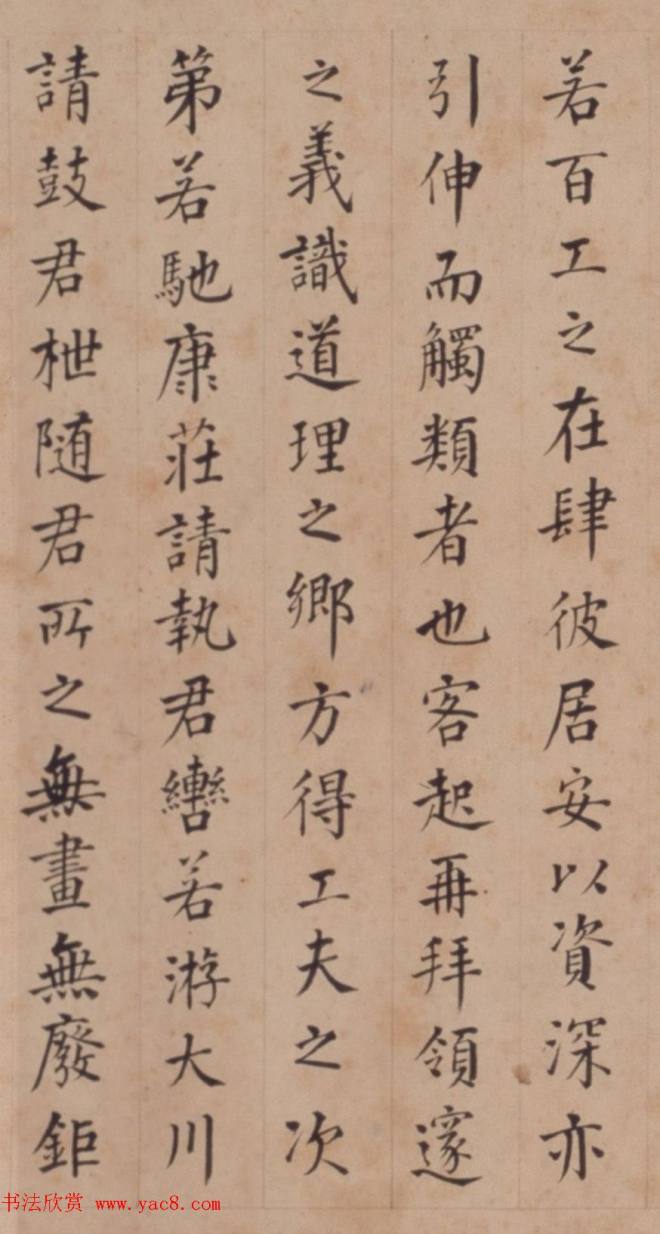 若百工之在肆彼居安以資深亦
引伸而觸類者也客起再拜領邃
之義識道理之鄉方得工夫之次
第若馳康莊請執君轡若游大川
請鼓君枻随君所之無畫無廢鉅
书法欣赏 www.yac8.com